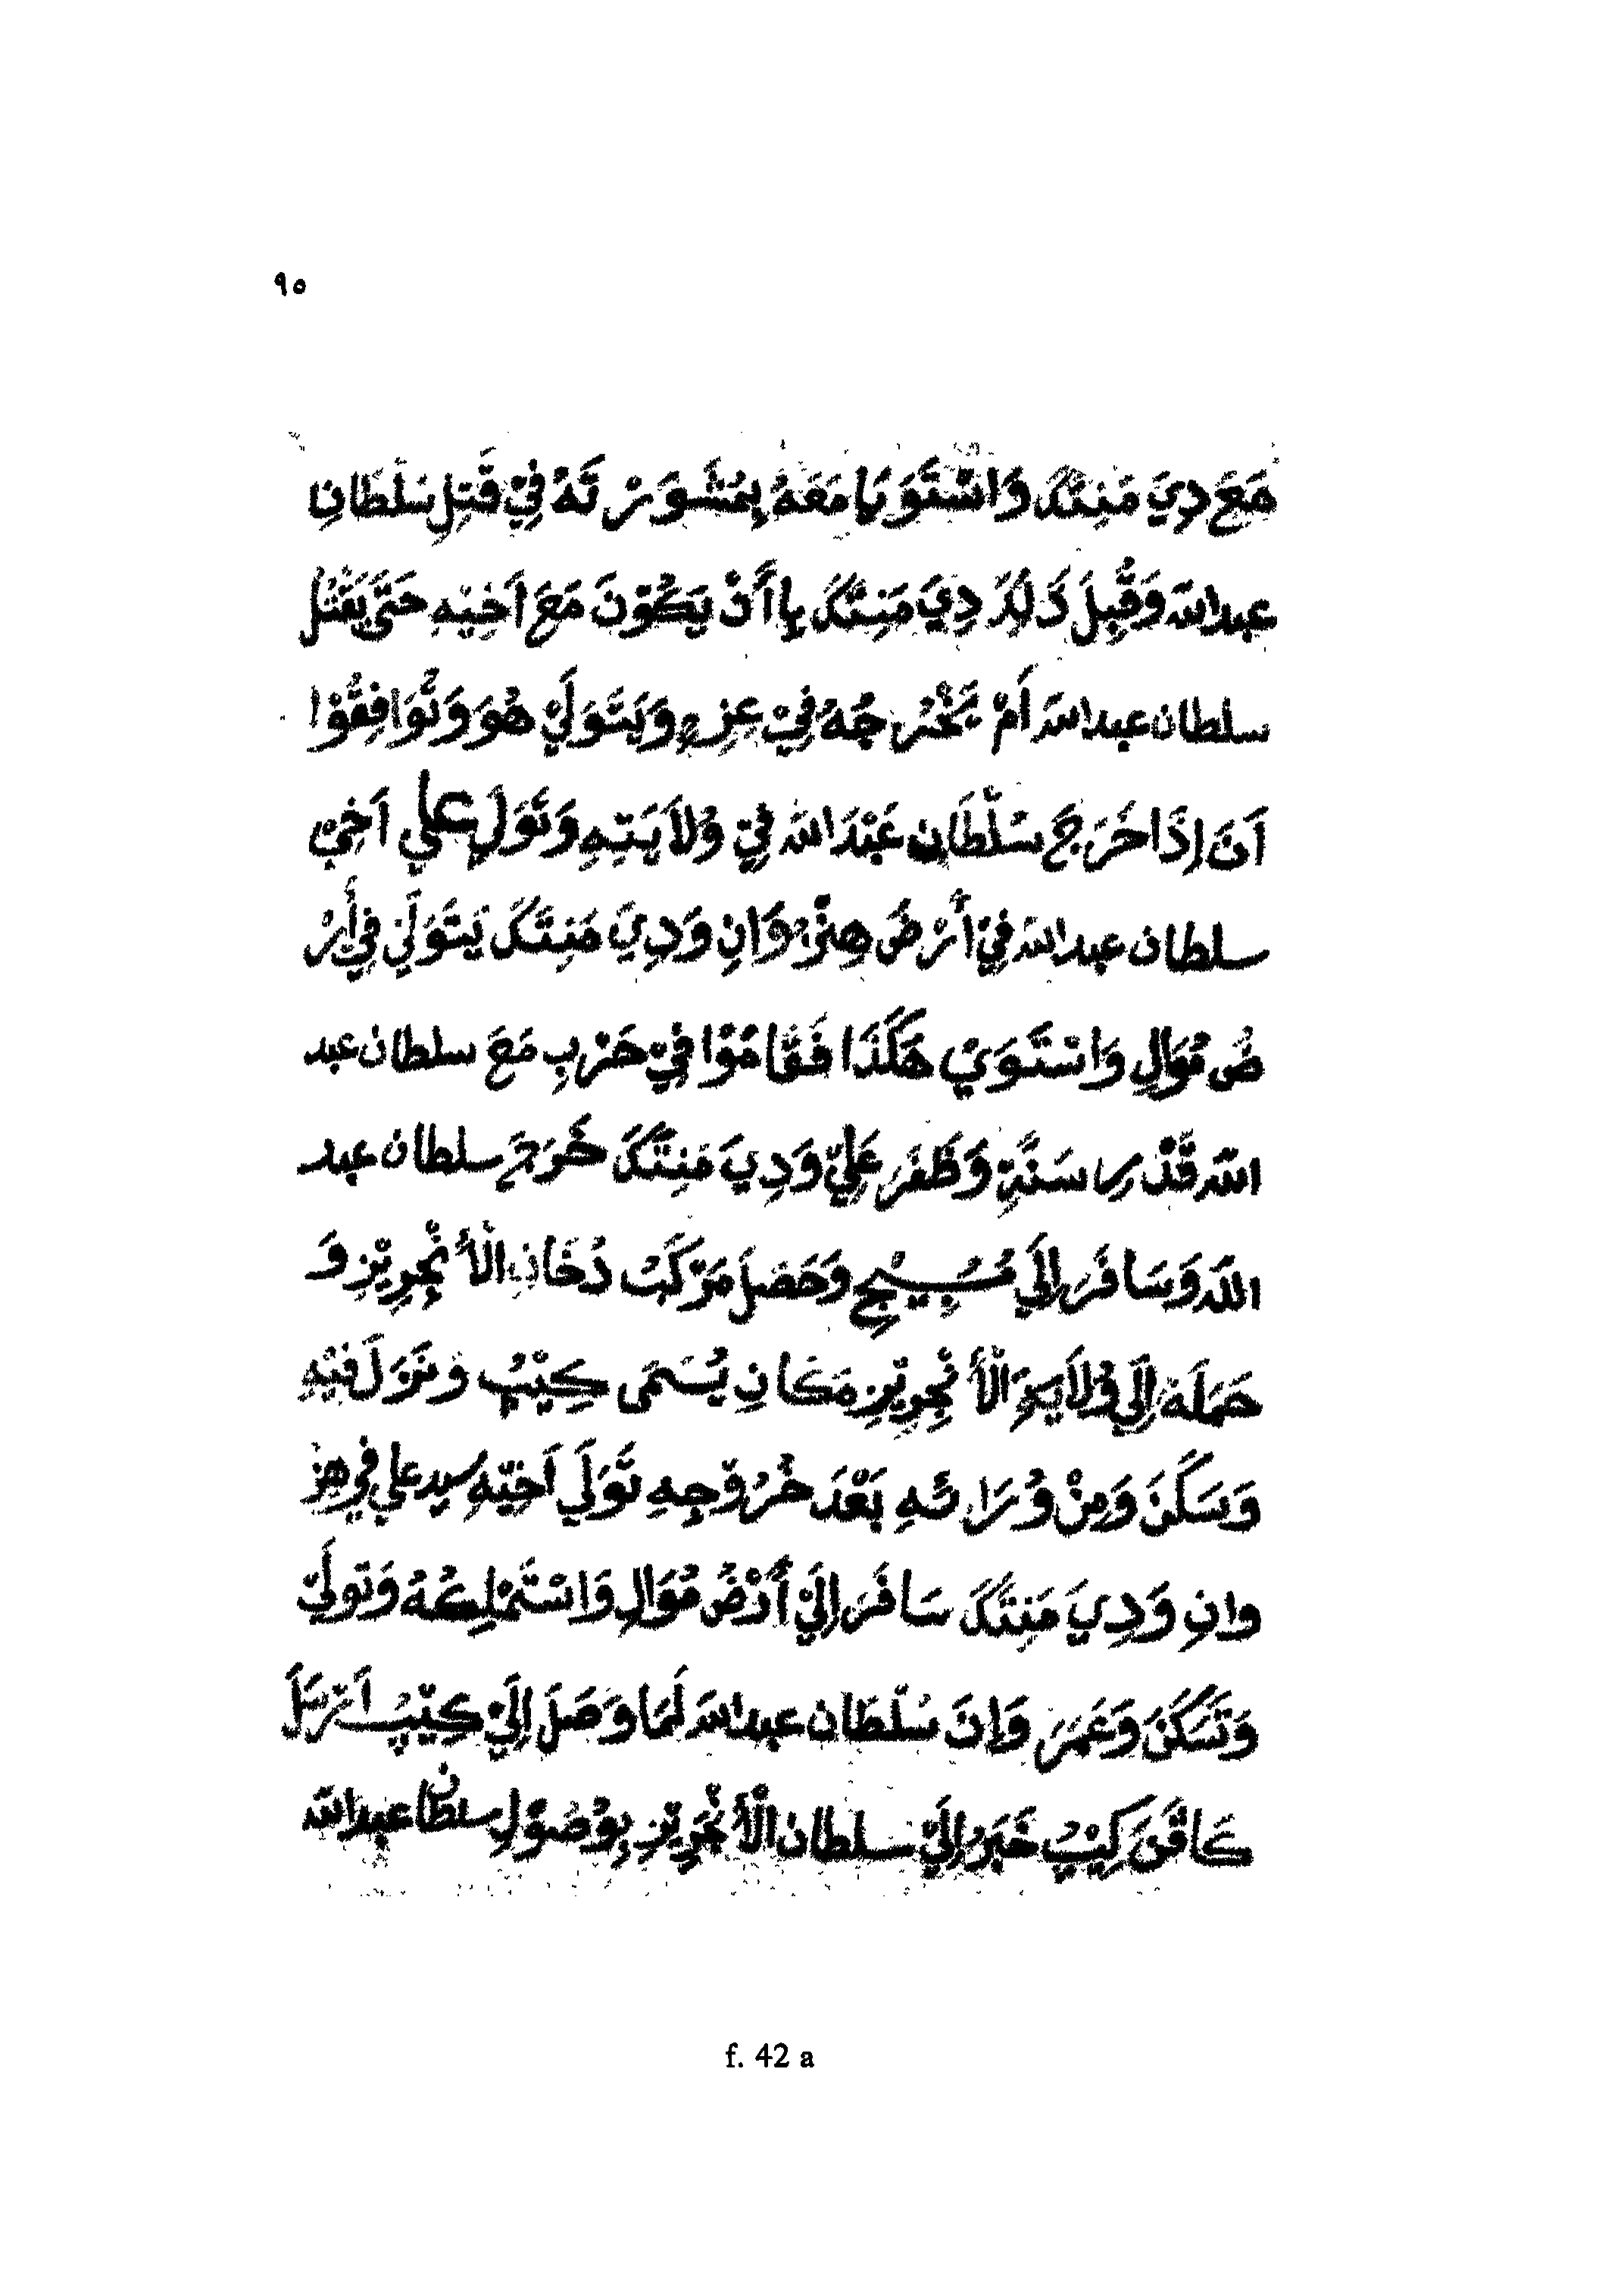 ٩٥
مَعَ دِيَ مَنِتَكَ وَاسْتَوَيَا مَعَهُ بِمُشَوَرْ تَهُ فِيْ قَتِلِ سُلْطَانِ
عبد الله وَقُبِلَ ذَلِكَ دِيَ مَنِتَكَ بِا أَنْ يَكُوْنَ مَعَ اَخِيْهِ حَتَّى يَقْتُل
سلطان عبد الله اَمْ يَخْرُجُهُ فِيْ عِزِهِ وَيَتَوَلَيْ هُوَ وَتُوَافِقُوْا
اَنَ اِذَا خَرَجَ سُلْطَان عَبْدَ الله فِيْ وُلَايَتِهِ وَتَوَلَ علي اَخِيْ
سلطان عبد الله فِيْ اَرْضَ هِنْزُوَانِ وَدِيَ مَنِتَكَ يَتَوَلَيْ فِيْ أَرْ
ضُ مُوَالِ وَاسْتَوَيْ هَكَذَا فَقَامُوْا فِيْ حَرْبِ مَعَ سلطان عبد
الله قَدْرِ سَنَةٍ وَظَفَرَ عَلِيْ وَدِيَ مَنِتَكَ خَرَجَ سلطان عبد
الله وَسَافَرَ اِلَيْ مُسَبِيْجِ وَحَصَلَ مَرْكَبُ دُخَانِ الْأَنْجِرِيْزِ وَ
حَمَلَهُ اِلَيْ وُلَايَةِ الْأَنْجِرِيْزِ مَكَانِ يُسَمَى كِيْبُ وَنَزَلَ فِيْهِ
وَسَكَنَ وَمِنْ وُرَائهِ بَعْدَ خُرُوْجِهِ تَوَلَي اَخِيْهِ سيد علي في هنز
وان وَدِيَ مَنِتَكَ سَافَرَ اِلَيْ أَرْضُ مُوَالِ وَاسْتَمْلِكُهُ وَتَوَلَيْ
وَتَسَكَنَ وَعَمَرَ وَاِنَ سُلْطَان عبد الله لَمَا وَصَلَ اِلَيْ كِيْبُ اَرْسَلَ
كَافَنَ كِيْبُ خَبَرُ اِلَيْ سلطان الْأَنْجِرِيْزِ بِوُصُوْلِ سلطان عبد الله
f. 42 a